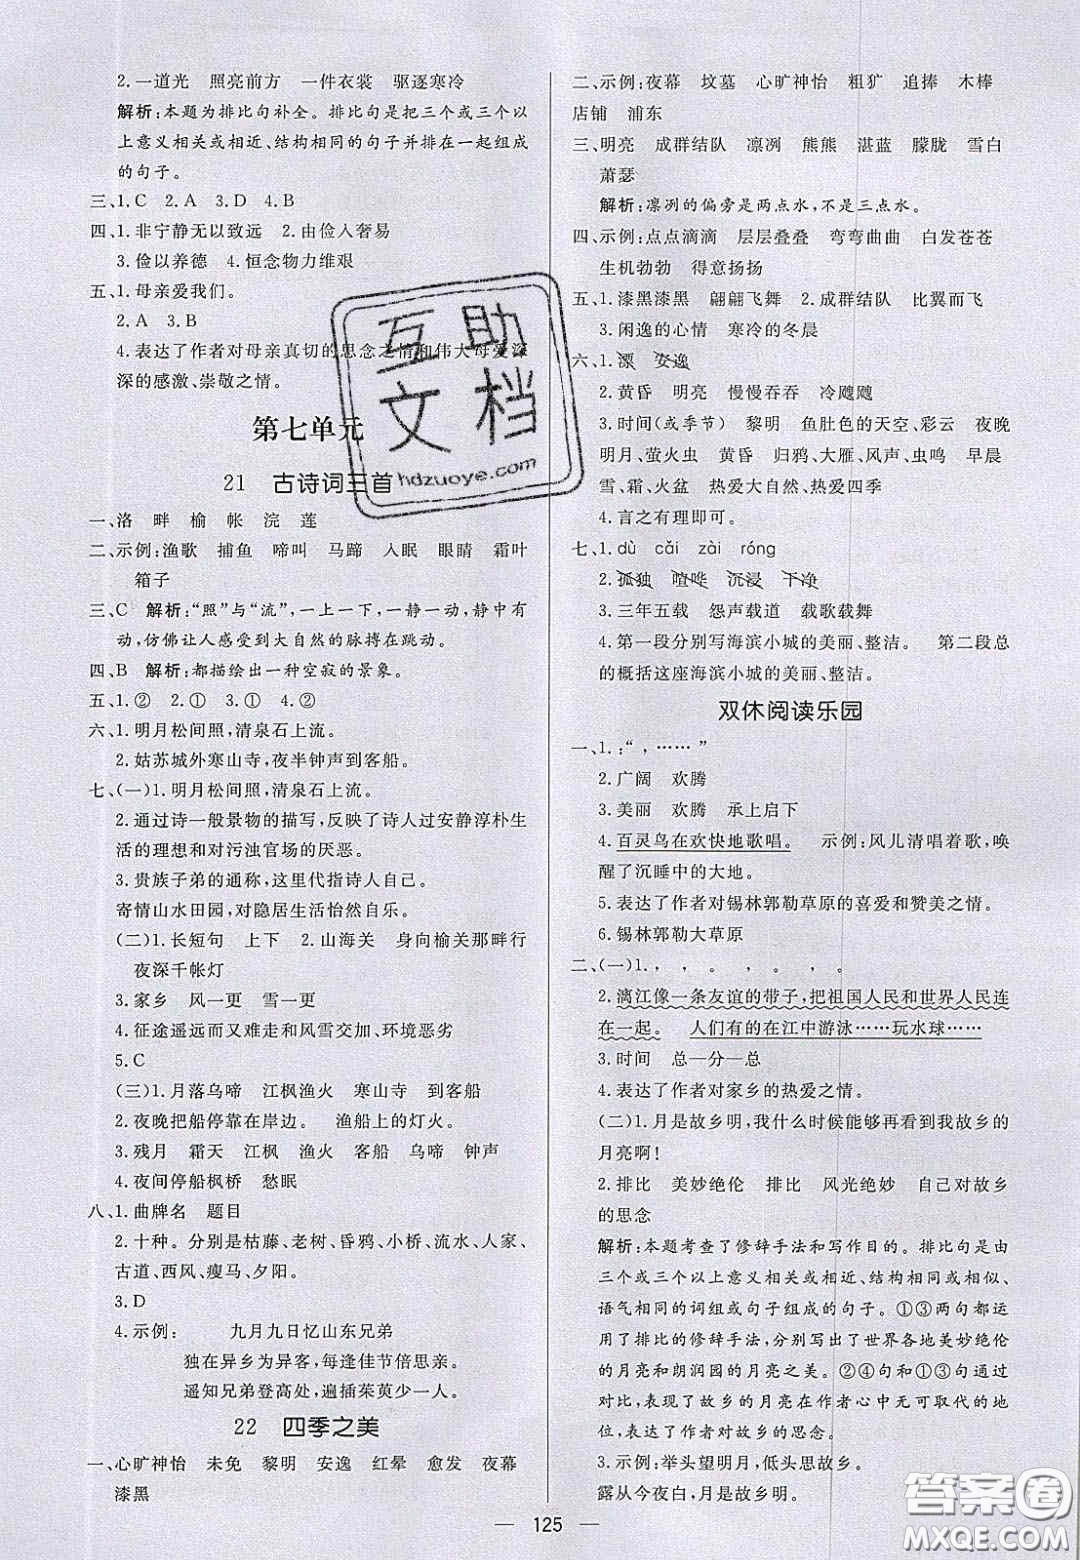 2.一道光　照亮前方　一件衣裳　驱逐寒冷
解析:本题为排比句补全。排比句是把三个或三个以
上意义相关或相近、结构相同的句子并排在一起组成
的句子。
三、1.C　2.A　3.D　4.B
四、1.非宁静无以致远　2.由俭入奢易
3.俭以养德　4.恒念物力维艰
五、1.母亲爱我们。
2.A　3.B
4.表达了作者对母亲真切的思念之情和伟大母爱深
深的感激、崇敬之情。
第七单元
21　古诗词三首
一、洛　畔　榆　帐　浣　莲
二、示例:渔歌　捕鱼　啼叫　马蹄　入眠　眼睛　霜叶
箱子
三、C　解析:“照”与“流”,一上一下,一静一动,静中有
动,仿佛让人感受到大自然的脉搏在跳动。
四、B　解析:都描绘出一种空寂的景象。
五、1.②　2.①　3.①　4.②
六、1.明月松间照,清泉石上流。
2.姑苏城外寒山寺,夜半钟声到客船。
七、(一)1.明月松间照,清泉石上流。
2.通过诗一般景物的描写,反映了诗人过安静淳朴生
活的理想和对污浊官场的厌恶。
3.贵族子弟的通称,这里代指诗人自己。
寄情山水田园,对隐居生活怡然自乐。
(二)1.长短句　上下　2.山海关　身向榆关那畔行
夜深千帐灯
3.家乡　风一更　雪一更
4.征途遥远而又难走和风雪交加、环境恶劣
5.C
(三)1.月落乌啼　江枫渔火　寒山寺　到客船
2.夜晚把船停靠在岸边。　渔船上的灯火。
3.残月　霜天　江枫　渔火　客船　乌啼　钟声
4.夜间停船枫桥　愁眠
八、1.曲牌名　题目
2.十种。分别是枯藤、老树、昏鸦、小桥、流水、人家、
古道、西风、瘦马、夕阳。
3.D
4.示例:　九月九日忆山东兄弟
独在异乡为异客,每逢佳节倍思亲。
遥知兄弟登高处,遍插茱萸少一人。
22　四季之美
一、心旷神怡　未免　黎明　安逸　红晕　愈发　夜幕
漆黑
二、示例:夜幕　坟墓　心旷神怡　粗犷　追捧　木棒
店铺　浦东
三、明亮　成群结队　凛冽　熊熊　湛蓝　朦胧　雪白
萧瑟
解析:凛冽的偏旁是两点水,不是三点水。
四、示例:点点滴滴　层层叠叠　弯弯曲曲　白发苍苍
生机勃勃　得意扬扬
五、1.漆黑漆黑　翩翩飞舞　2.成群结队　比翼而飞
3.闲逸的心情　寒冷的冬晨
六、1.漂　安逸
2.黄昏　明亮　慢慢吞吞　冷飕飕
3.时间(或季节)　黎明　鱼肚色的天空、彩云　夜晚
明月、萤火虫　黄昏　归鸦、大雁、风声、虫鸣　早晨
雪、霜、火盆　热爱大自然、热爱四季
4.言之有理即可。
七、1.dù　cǎi　zài　róng
2.孤独　喧哗　沉浸　干净
3.三年五载　怨声载道　载歌载舞
4.第一段分别写海滨小城的美丽、整洁。　第二段总
的概括这座海滨小城的美丽、整洁。
双休阅读乐园
一、1.:“，……”
2.广阔　欢腾
3.美丽　欢腾　承上启下
4.百灵鸟在欢快地歌唱。　示例:风儿清唱着歌,唤
醒了沉睡中的大地。
5.表达了作者对锡林郭勒草原的喜爱和赞美之情。
6.锡林郭勒大草原
二、(一)1.，　，　。　，　，　。
2.漓江像一条友谊的带子,把祖国人民和世界人民连
在一起。　人们有的在江中游泳……玩水球……
3.时间　总—分—总
4.表达了作者对家乡的热爱之情。
(二)1.月是故乡明,我什么时候能够再看到我故乡的
月亮啊!
2.排比　美妙绝伦　排比　风光绝妙　自己对故乡
的思念
解析:本题考查了修辞手法和写作目的。排比句是由
三个或三个以上意义相关或相近、结构相同或相似、
语气相同的词组或句子组成的句子。①③两句都运
用了排比的修辞手法,分别写出了世界各地美妙绝伦
的月亮和朗润园的月亮之美。②④句和①③句通过
对比,表明了故乡的月亮在作者心中无可取代的地
位,突出了作者对故乡的思念。
3.示例:举头望明月,低头思故乡。
露从今夜白,月是故乡明。
125
互助
文档
hdzuoye.com
答案圈
MXQE.COM